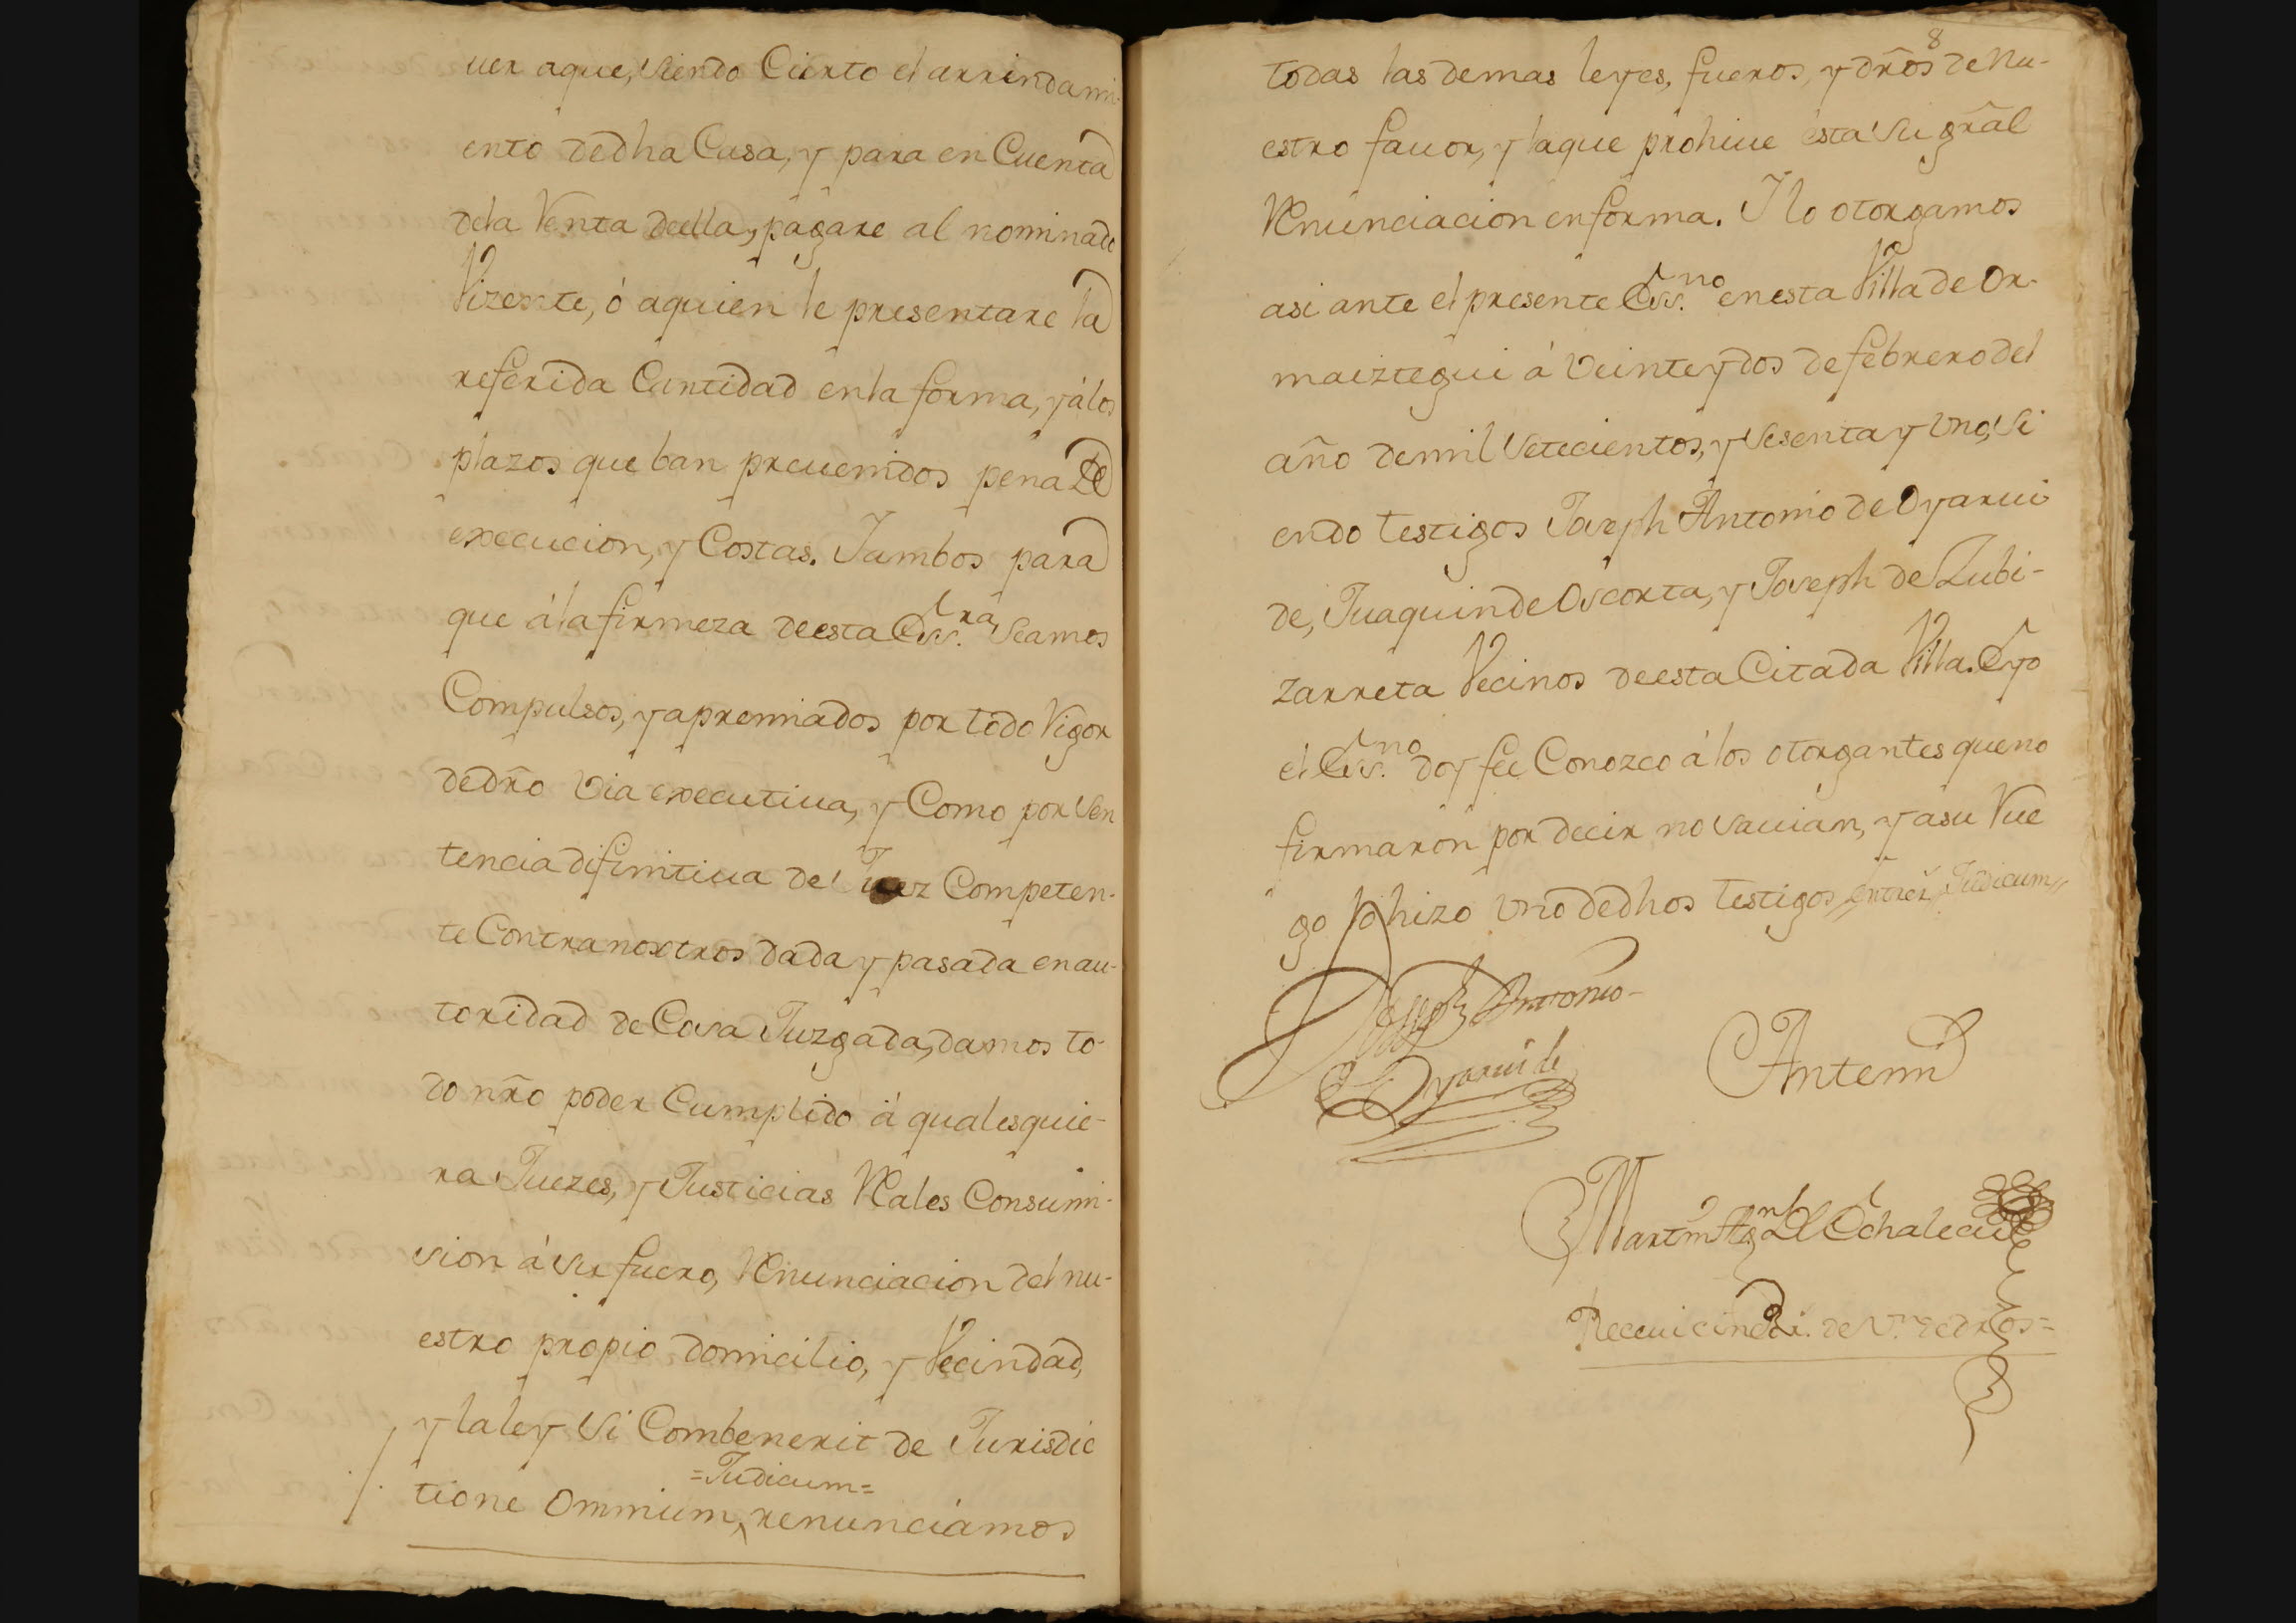 uer aque, siendo Cierto el arrindami-
ento dedha Casa, y para en Cuenta
dela Venta deella, pagare al nominado
Vizente, ó aquien le presentare la
referida Cantidad enla forma, y álos
plazos que ban preuenidos pena de
execucion, y Costas. Jambos para
que álafirmeza deesta Ess.ra seamos
Compulsos, y apremiados por todo Vigor
dedr̃o via executiua, y Como por sen
tencia difinitiua de Juez Competen-
te Contra nosotros dada y pasada enau-
toridad de Cosa Juzgada, damos to-
do nr̃o poder Cumplido á qualesquie-
ra Juezes, y Justicias Rales Consumi-
sion á su fuero, Renunciacion del nu-
estro propio domicilio, y Vecindad,
y laley si Combenerit de Jurisdic
=Judicum=
tione Omnium, renunciamos
8
todas las demas leyes, fueros, y dr̃os de nu-
estro fauor, y laque prohiue esta su gr̃al
Renunciacion enforma. I lo otorgamos
asi ante el presente Ess.no enesta Villa de Or-
maiztegui á veinte y dos de febrero del
año demil setecientos, y sesenta y uno, si
endo testigos Joseph Antonio de Oyarui
de, Juaquin de Oscorta, y Joseph de Zubi-
zarreta Vecinos deesta Citada Villa. E yo
el Ess.no doy fee Conozco álos otorgantes queno
firmaron por decir no sauian, y asu Rue
go lo hizo uno dedhos testigos, entrer.s Judicum
Joseph Antonio
Oyaruide
Antemi
Martin Ag.n de Echalecu
Receui cinco rr.